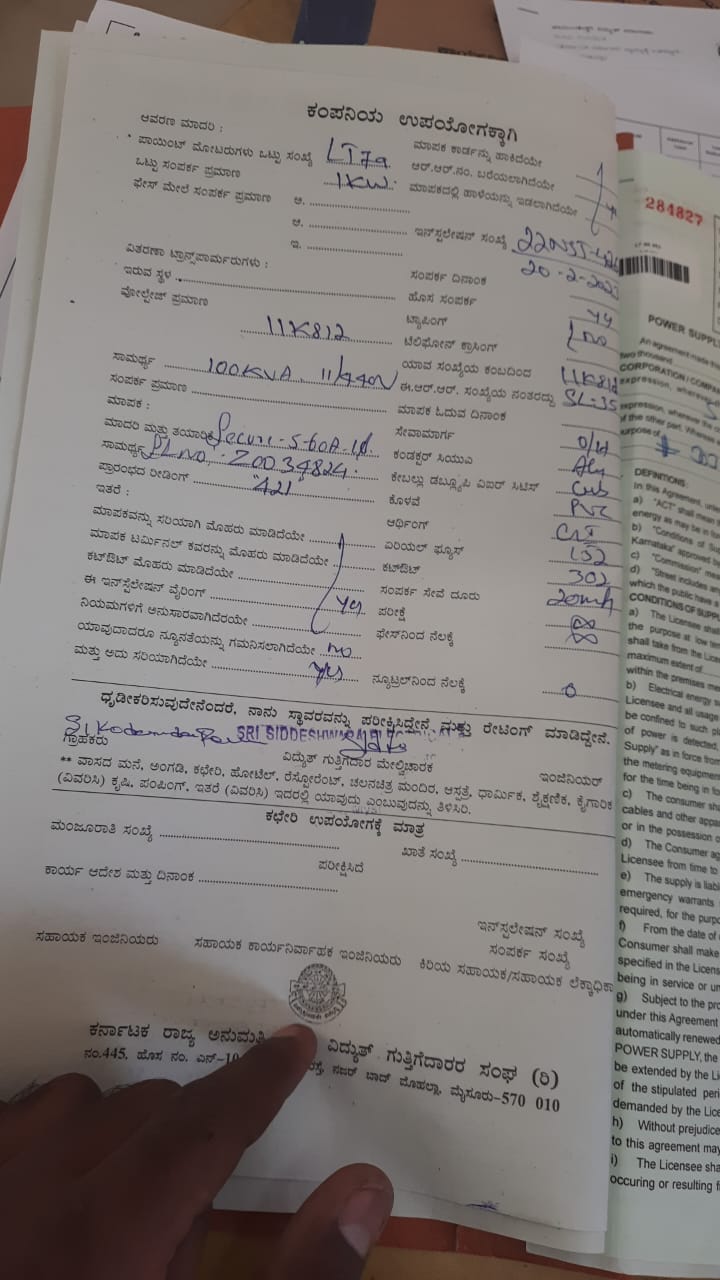 ಕಂಪನಿಯ ಉಪಯೋಗಕ್ಕಾಗಿ
ಆವರಣ ಮಾದರಿ :
ಮಾಪಕ ಕಾರ್ಡನ್ನು ಹಾಕಿದೆಯೇ
ಪಾಯಿಂಟ್ ಮೋಟರುಗಳು ಒಟ್ಟು ಸಂಖ್ಯೆ LT7a
ಆರ್.ಆರ್.ನಂ. ಬರೆಯಲಾಗಿದೆಯೇ
ಒಟ್ಟು ಸಂಪರ್ಕ ಪ್ರಮಾಣ 1KW.
ಮಾಪಕದಲ್ಲಿ ಹಾಳೆಯನ್ನು ಇಡಲಾಗಿದೆಯೇ
ಫೇಸ್ ಮೇಲೆ ಸಂಪರ್ಕ ಪ್ರಮಾಣ ಅ.
ಆ.
ಇನ್‌ಸ್ಟಲೇಷನ್ ಸಂಖ್ಯೆ
ಇ.
ವಿತರಣಾ ಟ್ರಾನ್ಸ್‌ಪಾರ್ಮರುಗಳು :
ಸಂಪರ್ಕ ದಿನಾಂಕ 20-2-202
ಇರುವ ಸ್ಥಳ
ಹೊಸ ಸಂಪರ್ಕ
ವೋಲ್ಟೇಜ್ ಪ್ರಮಾಣ 11K812
ಟ್ಯಾಪಿಂಗ್
ಟೆಲಿಫೋನ್ ಕ್ರಾಸಿಂಗ್ no
ಯಾವ ಸಂಖ್ಯೆಯ ಕಂಬದಿಂದ 11K812
ಸಾಮರ್ಥ್ಯ 100KVA. 11/440V
ಈ.ಆರ್.ಆರ್. ಸಂಖ್ಯೆಯ ನಂತರದ್ದು SL-35
ಸಂಪರ್ಕ ಪ್ರಮಾಣ
ಮಾಪಕ ಓದುವ ದಿನಾಂಕ
ಮಾಪಕ :
ಸೇವಾಮಾರ್ಗ O/H
ಮಾದರಿ ಮತ್ತು ತಯಾರಿಕೆ Secure-5-60A-1
ಕಂಡಕ್ಟರ್ ಸಿಯುವಿ
ಸಾಮರ್ಥ್ಯ SLNO: Z0034824.
ಕೇಬಲ್ಲು ಡಬ್ಲ್ಯೂಪಿ ವಿಐರ್ ಸಿಟಿಸ್
ಪ್ರಾರಂಭದ ರೀಡಿಂಗ್ "421"
ಕೊಳವೆ PVC
ಇತರೆ :
ಆರ್ಥಿಂಗ್
ಮಾಪಕವನ್ನು ಸರಿಯಾಗಿ ಮೊಹರು ಮಾಡಿದೆಯೇ
ಏರಿಯಲ್ ಫ್ಯೂಸ್ 152
ಮಾಪಕ ಟರ್ಮಿನಲ್ ಕವರನ್ನು ಮೊಹರು ಮಾಡಿದೆಯೇ
ಕಟ್‌ಔಟ್ 302
ಕಟ್‌ಔಟ್ ಮೊಹರು ಮಾಡಿದೆಯೇ
ಸಂಪರ್ಕ ಸೇವೆ ದೂರು
ಈ ಇನ್‌ಸ್ಟಲೇಷನ್ ವೈರಿಂಗ್ Yes
ಪರೀಕ್ಷೆ ∞
ನಿಯಮಗಳಿಗೆ ಅನುಸಾರವಾಗಿದೆರಯೇ
ಫೇಸ್‌ನಿಂದ ನೆಲಕ್ಕೆ ∞
ಯಾವುದಾದರೂ ನ್ಯೂನತೆಯನ್ನು ಗಮನಿಸಲಾಗಿದೆಯೇ no
ಮತ್ತು ಅದು ಸರಿಯಾಗಿದೆಯೇ yes
ನ್ಯೂಟ್ರಲ್‌ನಿಂದ ನೆಲಕ್ಕೆ 0
ಧೃಡೀಕರಿಸುವುದೇನೆಂದರೆ, ನಾನು ಸ್ಥಾವರವನ್ನು ಪರೀಕ್ಷಿಸಿದ್ದೇನೆ ಮತ್ತು ರೇಟಿಂಗ್ ಮಾಡಿದ್ದೇನೆ.
SRI SIDDESHWARA
ಗ್ರಾಹಕರು ವಿದ್ಯುತ್ ಗುತ್ತಿಗೆದಾರ ಮೇಲ್ವಿಚಾರಕ ಇಂಜಿನಿಯರ್
** ವಾಸದ ಮನೆ, ಅಂಗಡಿ, ಕಛೇರಿ, ಹೋಟೆಲ್, ರೆಸ್ಟೋರೆಂಟ್, ಚಲನಚಿತ್ರ ಮಂದಿರ, ಆಸ್ಪತ್ರೆ, ಧಾರ್ಮಿಕ, ಶೈಕ್ಷಣಿಕ, ಕೈಗಾರಿಕ
(ವಿವರಿಸಿ) ಕೃಷಿ, ಪಂಪಿಂಗ್, ಇತರೆ (ವಿವರಿಸಿ) ಇದರಲ್ಲಿ ಯಾವುದು ಎಂಬುವುದನ್ನು ತಿಳಿಸಿರಿ.
ಕಛೇರಿ ಉಪಯೋಗಕ್ಕೆ ಮಾತ್ರ
ಮಂಜೂರಾತಿ ಸಂಖ್ಯೆ ಖಾತೆ ಸಂಖ್ಯೆ
ಪರೀಕ್ಷಿಸಿದೆ
ಕಾರ್ಯ ಆದೇಶ ಮತ್ತು ದಿನಾಂಕ
ಇನ್‌ಸ್ಟಲೇಷನ್ ಸಂಖ್ಯೆ
ಸಂಪರ್ಕ ಸಂಖ್ಯೆ
ಸಹಾಯಕ ಇಂಜಿನಿಯರು ಸಹಾಯಕ ಕಾರ್ಯನಿರ್ವಾಹಕ ಇಂಜಿನಿಯರು ಕಿರಿಯ ಸಹಾಯಕ/ಸಹಾಯಕ ಲೆಕ್ಕಾಧಿಕಾ
ಕರ್ನಾಟಕ ರಾಜ್ಯ ಅನುಮತಿ ವಿದ್ಯುತ್ ಗುತ್ತಿಗೆದಾರರ ಸಂಘ (ರಿ)
ನಂ.445, ಹೊಸ ನಂ. ಎನ್-10 ರಸ್ತೆ, ನಜರ್ ಬಾದ್ ಮೊಹಲ್ಲಾ, ಮೈಸೂರು-570 010
284827
POWER SUPPLY
An agreement made
two thousand
CORPORATION / COMPA
expression, wherever
expression, wherever the
of the other part. Whereas
purpose of
DEFINITIONS:
In this Agreement, unle
a) "ACT" shall mean
energy as may be in for
b) "Conditions of Su
Karnataka" approved by
c) "Commission" mea
d) "Street includes any
which the public have a
CONDITIONS OF SUPPL
a) The Licensee shal
the purpose at low ten
shall take from the Lice
maximum extent of
within the premises me
b) Electrical energy s
Licensee and all usage
be confined to such pl
of power is detected,
Supply" as in force from
the metering equipmen
for the time being in fo
c) The consumer sha
cables and other appa
or in the possession o
d) The Consumer ag
Licensee from time to
e) The supply is liabl
emergency warrants
required, for the purpo
f) From the date of
Consumer shall make
specified in the Licens
being in service or un
g) Subject to the pro
under this Agreement
automatically renewed
POWER SUPPLY, the
be extended by the Li
of the stipulated peri
demanded by the Lice
h) Without prejudice
to this agreement may
i) The Licensee sha
occuring or resulting f